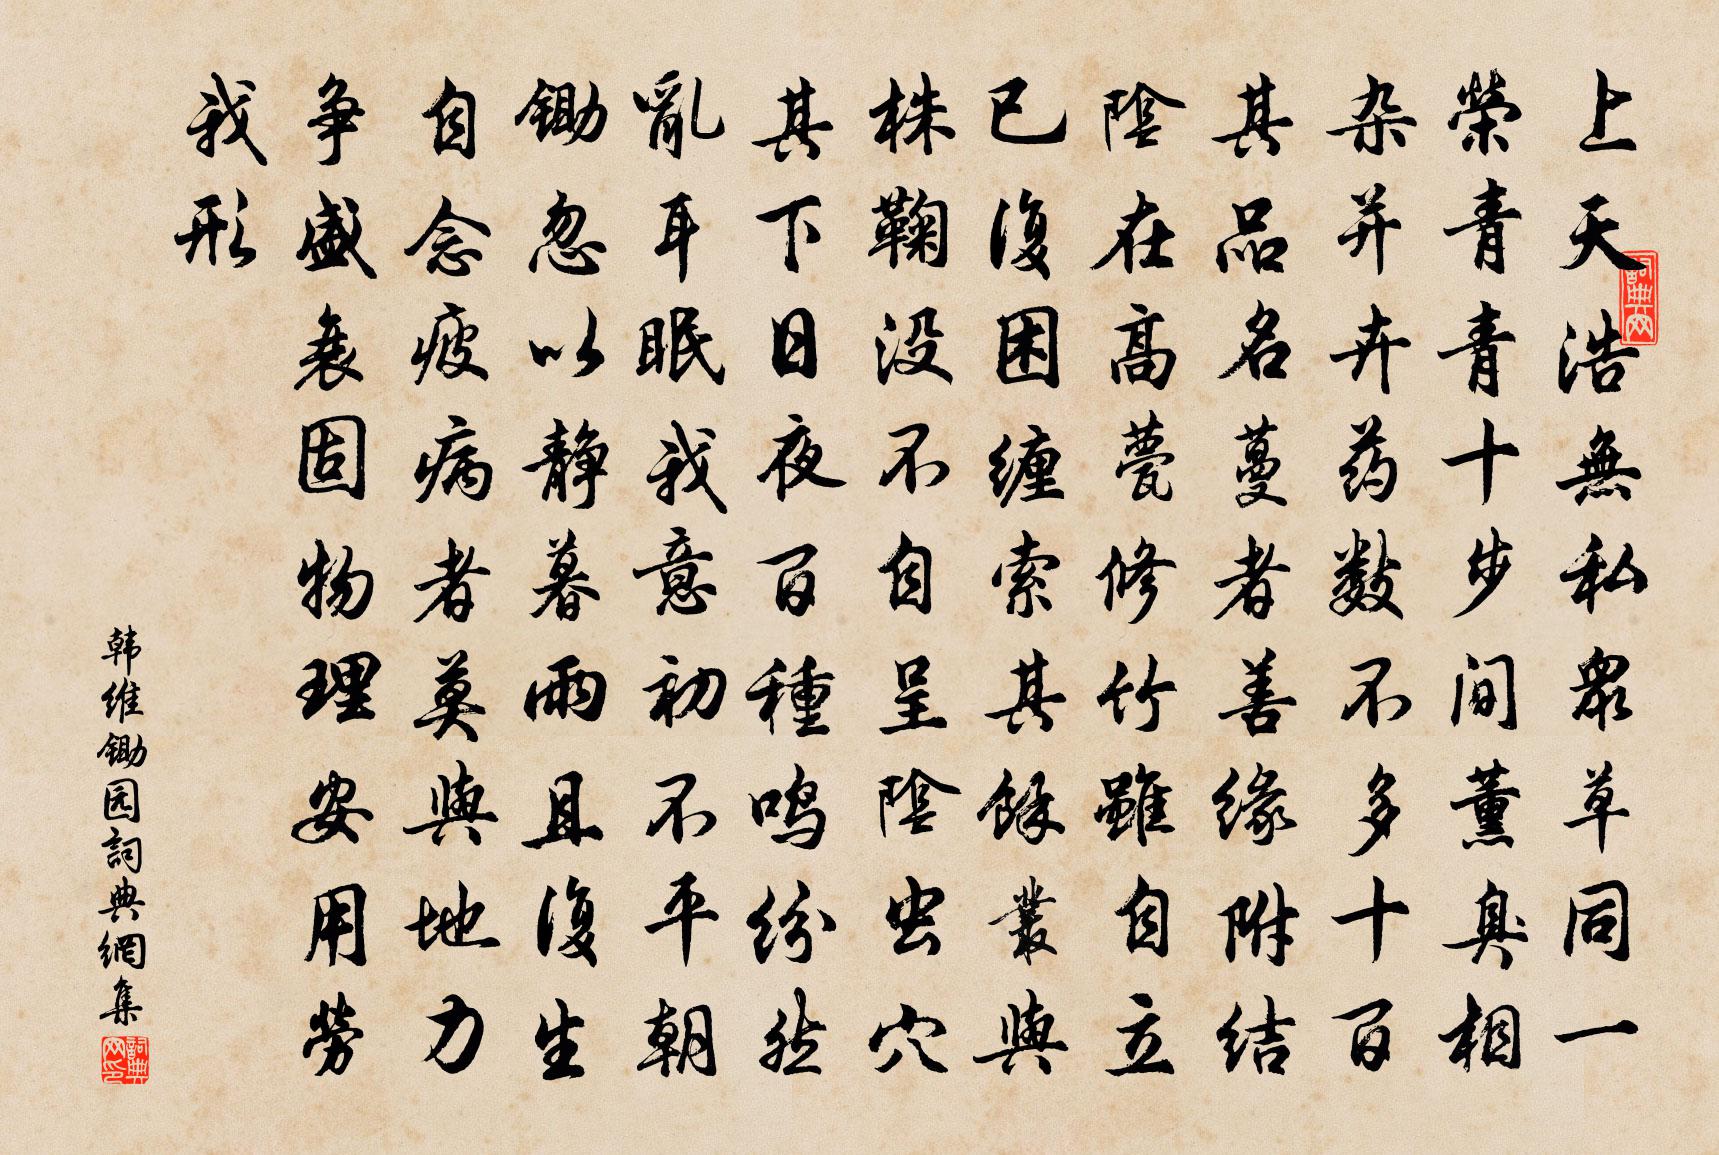 上天浩無私衆草同一
榮青青十步间薰臭相
杂并卉药数不多十百
其品名蔓者善缘附结
陰在高甍修竹雖自立
已復困缠索其餘叢與
株鞠没不自呈陰虫穴
其下日夜百種鸣纷然
亂耳眠我意初不平朝
锄忽以静暮雨且復生
自念疲病者莫與地力
争盛衰固物理安用劳
我形
韩维锄园詞典網集
詞典网
詞典网印